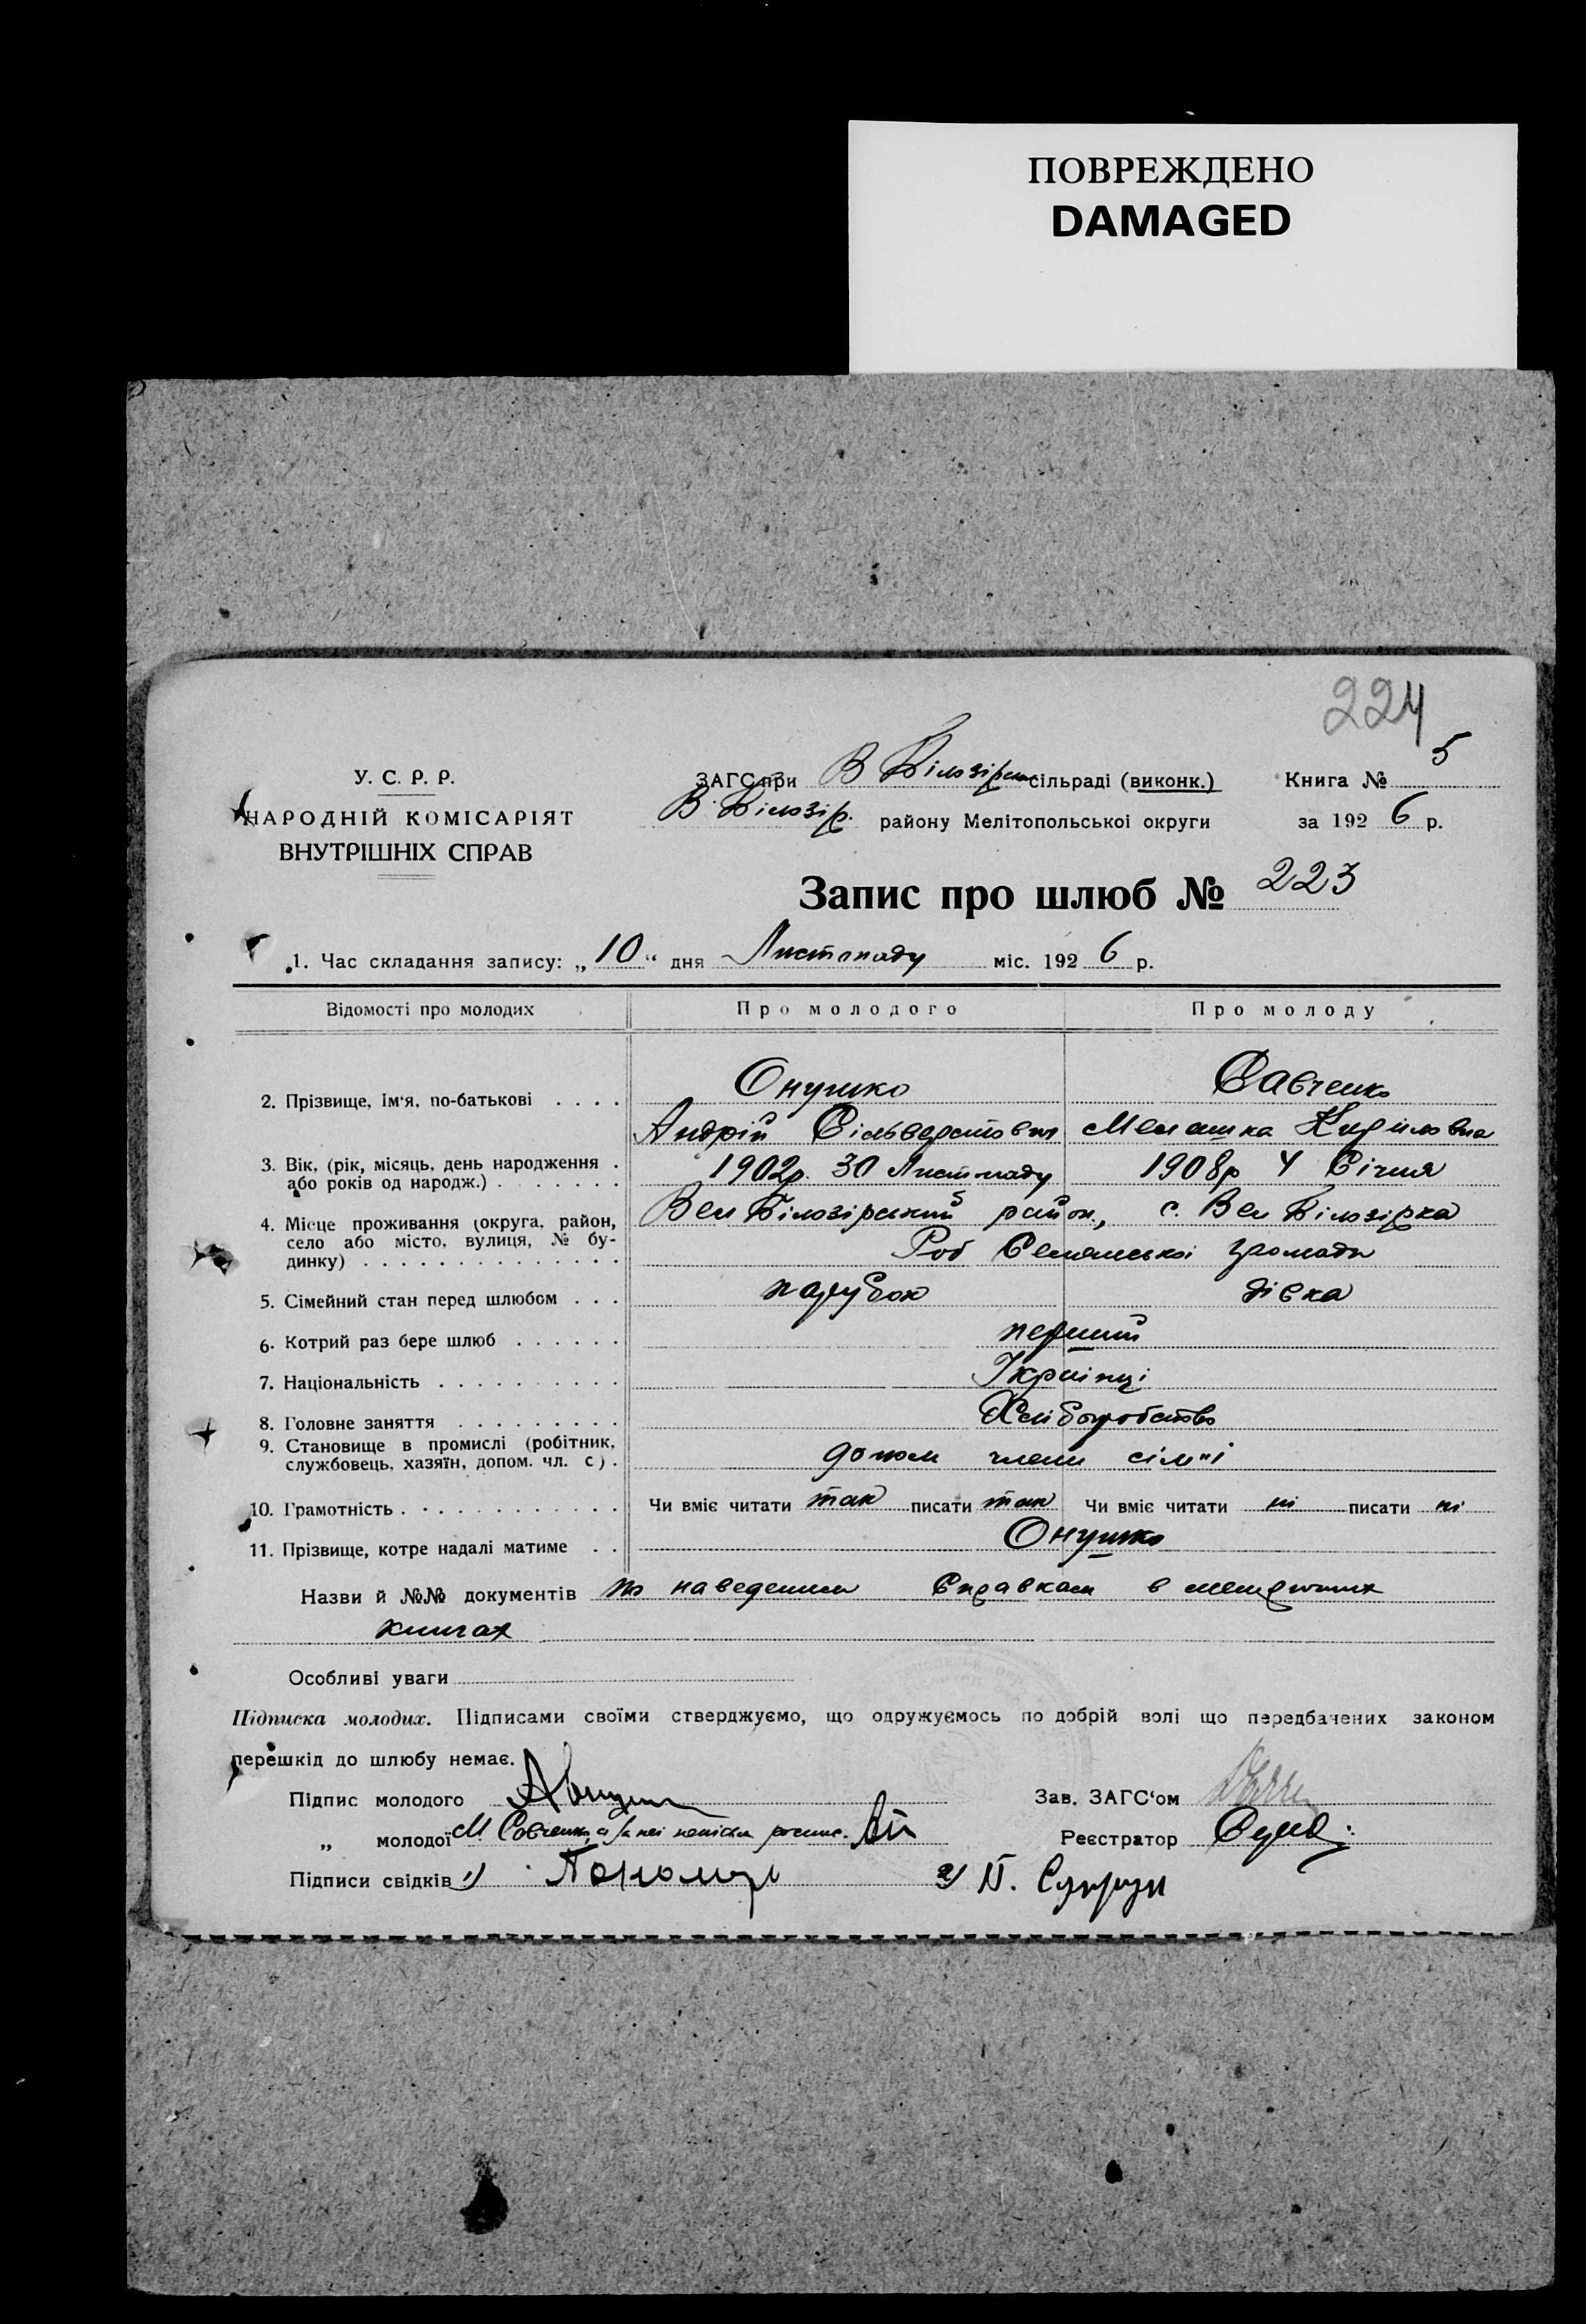 ПОВРЕЖДЕНО
DAMAGED
224
У. С. Р. Р.
НАРОДНІЙ КОМІСАРІЯТ
ВНУТРІШНІХ СПРАВ
ЗАГС при В Білозірській сільраді (виконк.) Книга № 5
В. Білозір. району Мелітопольської округи за 1926 р.
Запис про шлюб № 223
1. Час складання запису: „10“ дня Листопаду міс. 1926 р.
Відомості про молодих Про молодого Про молоду
2. Прізвище, Ім'я, по-батькові . . . . Онушко Савченко
Андрій Сільверстович Мелашка Киріловна
3. Вік, (рік, місяць, день народження . або років од народж.) . . . . . . . 1902р. 30 Листопаду 1908р 4 Січня
4. Місце проживання (округа, район, село або місто, вулиця, № будинку) . . . . . . . . . . . . . . Вел Білозірський район, с. Вел Білозірка
громади
5. Сімейний стан перед шлюбом . . . парубок дівка
6. Котрий раз бере шлюб . . . . . . перший
7. Національність . . . . . . . . . . Українці
8. Головне заняття . . . . . . . . . Хліборобство
9. Становище в промислі (робітник, службовець, хазяїн, допом. чл. с) . допом члени сім"ї
10. Грамотність . . . . . . . . . . . Чи вміє читати так писати так Чи вміє читати ні писати ні
11. Прізвище, котре надалі матиме . . Онушко
Назви й №№ документів по наведеним справкам в метричних
книгах
Особливі уваги
Підписка молодих. Підписами своїми стверджуємо, що одружуємось по добрій волі що передбачених законом
перешкід до шлюбу немає.
Підпис молодого Зав. ЗАГС'ом
„ молодої М Савченко Реєстратор
Підписи свідків 1) Пономар 2) П.